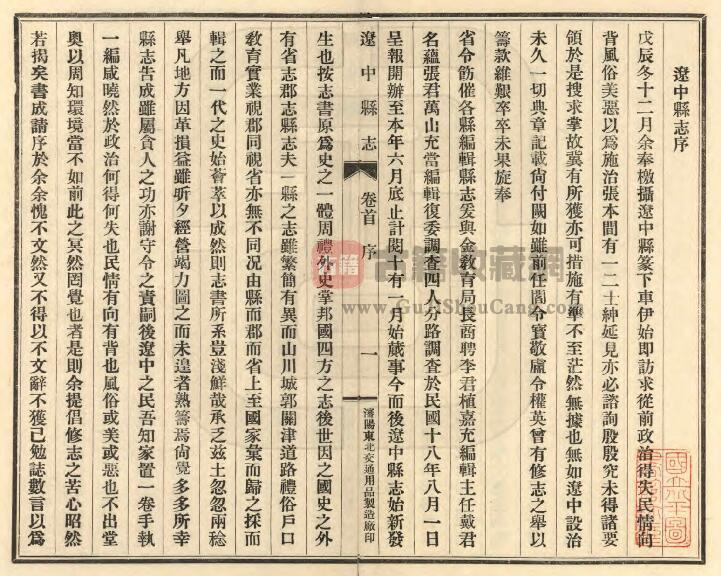 遼中縣志序
戊辰冬十二月余奉檄攝遼中縣篆下車伊始即訪求從前政治得失民情向
背風俗美惡以爲施治張本間有一二士紳延見亦必諮詢殷殷究未得諸要
領於是搜求掌故冀有所獲亦可措施有準不至茫然無據也無如遼中設治
未久一切典章記載尙付闕如雖前任閻令寳敬盧令權英曾有修志之舉以
籌款維艱卒卒未果旋奉
省令飭催各縣編輯縣志爰與金敎育局長商聘李君植嘉充編輯主任戴君
名蘊張君萬山充當編輯復委調查四人分路調查於民國十八年八月一日
呈報開辦至本年六月底止計閱十有一月始蕆事今而後遼中縣志始新發
遼中縣志
卷首
序
一
瀋陽東北交通用品製造廠印
生也按志書原爲史之一體周禮外史掌邦國四方之志後世因之國史之外
有省志郡志縣志夫一縣之志雖繁簡有異而山川城郭關津道路禮俗戶口
敎育實業視郡同視省亦無不同况由縣而郡而省上至國家彙而歸之採而
輯之而一代之史始薈萃以成然則志書所系豈淺鮮哉承乏茲土忽忽兩稔
舉凡地方因革損益雖昕夕經營竭力圖之而未遑者熟籌焉尙覺多多所幸
縣志吿成雖屬貪人之功亦謝守令之責嗣後遼中之民吾知家置一卷手執
一編咸曉然於政治何得何失也民情有向有背也風俗或美或惡也不出堂
奧以周知環境當不如前此之冥然罔覺也者是則余提倡修志之苦心昭然
若揭矣書成請序於余余愧不文然又不得以不文辭不獲已勉誌數言以爲
古籍
古籍收藏網
www.GujiShouCang.com